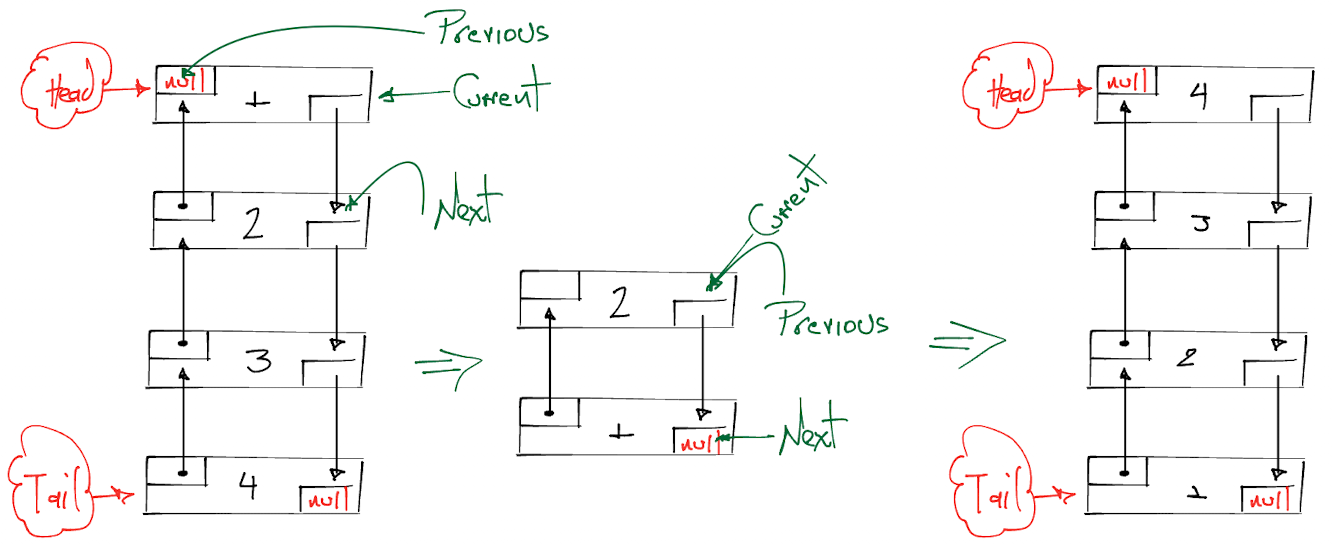 Previous
Head
null
1
Current
2
Next
3
Tail
4
null
Current
2
Previous
1
null
Next
Head
null
4
3
2
Tail
1
null